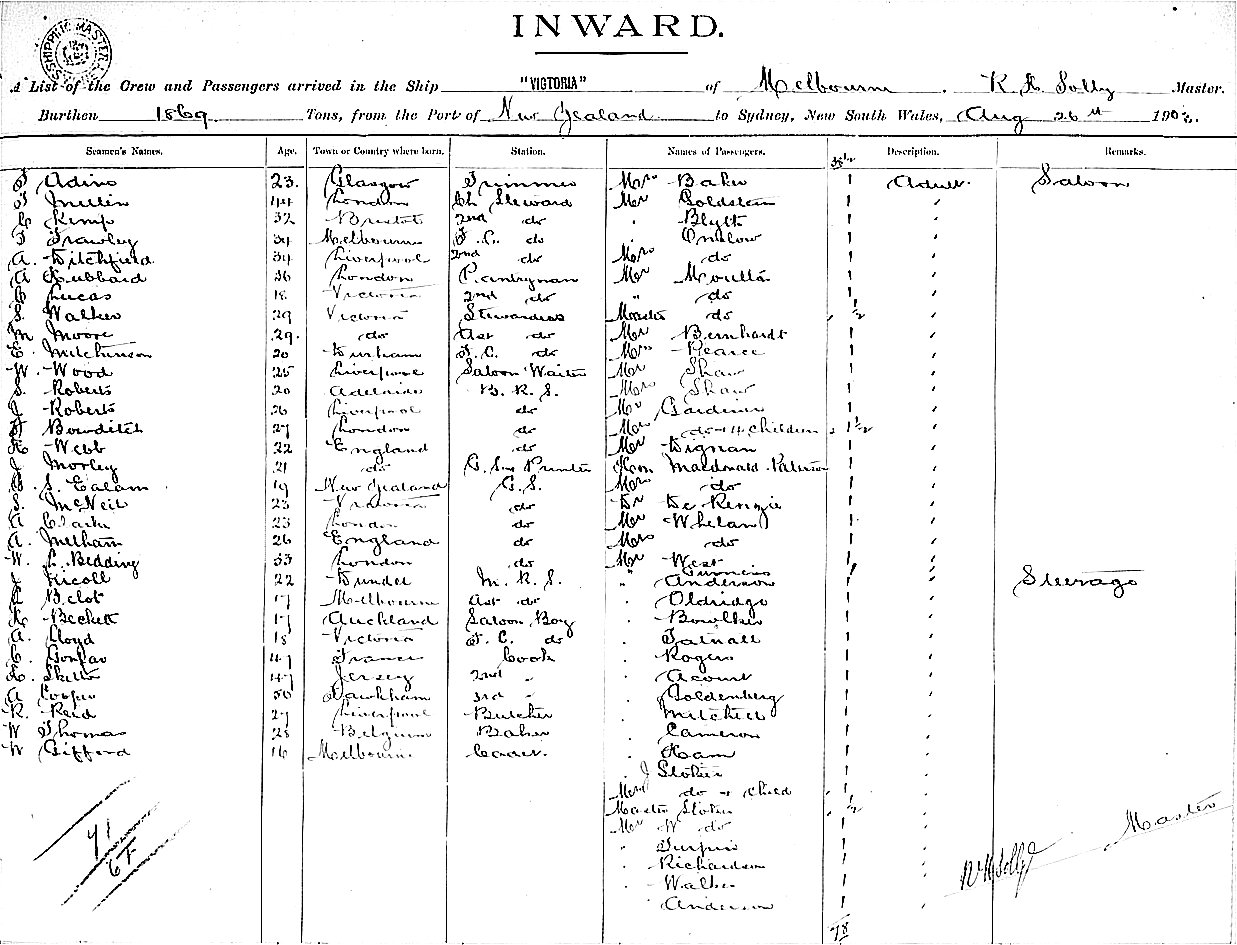 INWARD.
SHIPPING MASTER
A List of the Crew and Passengers arrived in the Ship "VICTORIA" of Melbourne. Master.
Burthen 1869 Tons, from the Port of New Zealand to Sydney, New South Wales, Aug 26th 190
Seamen's Names. Age. Town or Country where born. Station. Names of Passengers. Description. Remarks.
23. Glasgow Trimmer Mrs Baker 1 Adult. Saloon
44 London Ch Steward Mr Goldstein 1 "
Kemp 32 Bristol 2nd do " Blyth 1 "
34 Melbourne F. C. do Onslow 1 "
A. Ditchfield 34 Liverpool 2nd do Mrs do 1 "
A Hubbard 36 London Pantryman Mr 1 "
Lucas 18 Victoria 2nd do " do 1 "
S. Walker 29 Victoria Stewardess Master do 1/2 "
M Moore 29. do Asst do Mr Bernhardt 1 "
E. Mitchinson 20 Durham F. C. do Mrs Pearce 1 "
W. Wood 25 Liverpool Saloon Waiter Mr Shaw 1 "
S. Roberts 20 Adelaide B. R. S. Mrs Shaw 1 "
J Roberts 26 Liverpool do Mr Gardiner 1 "
Bowditch 27 London do Mrs do + 4 children 1 1/2 "
Webb 22 England do Mr Dignan 1 "
J Morley 21 do Hon Macdonald 1 "
S. Ealam 19 New Zealand G. S. Mrs do 1 "
S. McNeil 23 Victoria do Dr De Renzie 1 "
Clarke 23 London do Mr Whelan 1 "
A. Meltham 26 England do Mrs do 1 "
W. Bedding 33 London do Mr West 1 "
J Nicoll 22 Dundee M. R. S. " Anderson 1 " Steerage
Belot 17 Melbourne Asst do " Oldridge 1 "
Beckett 17 Auckland Saloon Boy " 1 "
A. Lloyd 18 Victoria F. C. do " Tatnall 1 "
France Cook " Rogers 1 "
Jersey 2nd " " Acourt 1 "
A Cooper 50 3rd " " Goldenberg 1 "
R. Reid 27 Liverpool Butcher " Mitchell 1 "
W Thomas 28 Belgium Baker " Cameron 1 "
W Gifford 16 Melbourne " Ham 1 "
J Stokes 1 "
Mrs do + child 1 "
Master Stokes 1/2 "
Mr W do 1 "
" Turpin 1 "
" Richardson 1 "
" Walker 1 "
" Anderson 1 "
Master
78